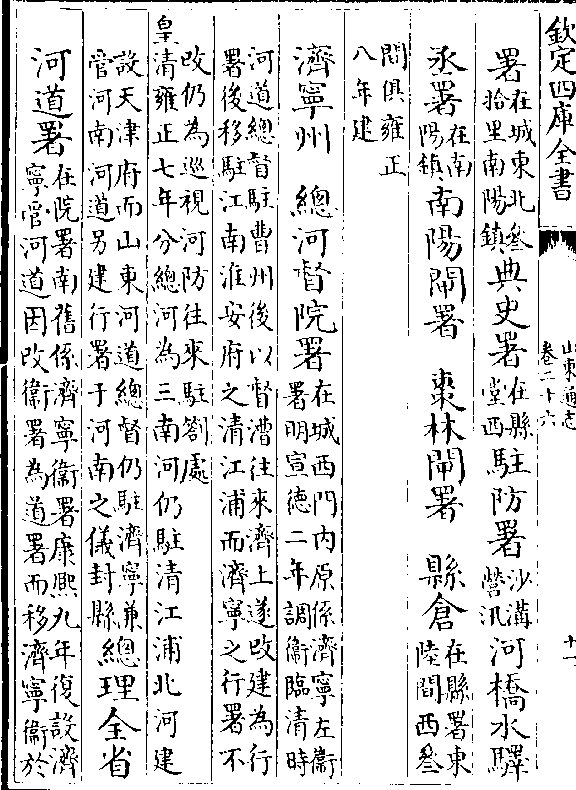 欽定四庫全書
山東通志
卷二十六
十一
署在城東北叁拾里南陽鎮典史署在縣堂西駐防署沙溝營汛河橋水驛
丞署在南陽鎮南陽閘署 棗林閘署 縣倉在縣署東陸間西叁
間俱雍正八年建
濟寧州 總河督院署在城西門內原係濟寧左衛署明宣徳二年調衛臨清時
河道總督駐曹州後以督漕往來濟上遂改建為行署後移駐江南淮安府之清江浦而濟寧之行署不
改仍為巡視河防往來駐劄處
皇清雍正七年分總河為三南河仍駐清江浦北河建
設天津府而山東河道總督仍駐濟寧兼管河南河道另建行署于河南之儀封縣總理全省
河道署在院署南舊係濟寧衛署康熙九年復設濟寧管河道因改衛署為道署而移濟寧衛於